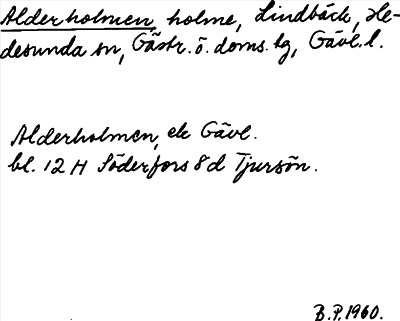 Alderholmen, holme, Lindbäck, He-
desunda sn, Gästr. ö. doms. tg, Gävl. l.
Alderholmen, ek Gävl.
bl. 12 H Söderfors 8 d Tjursön.
B.P. 1960.